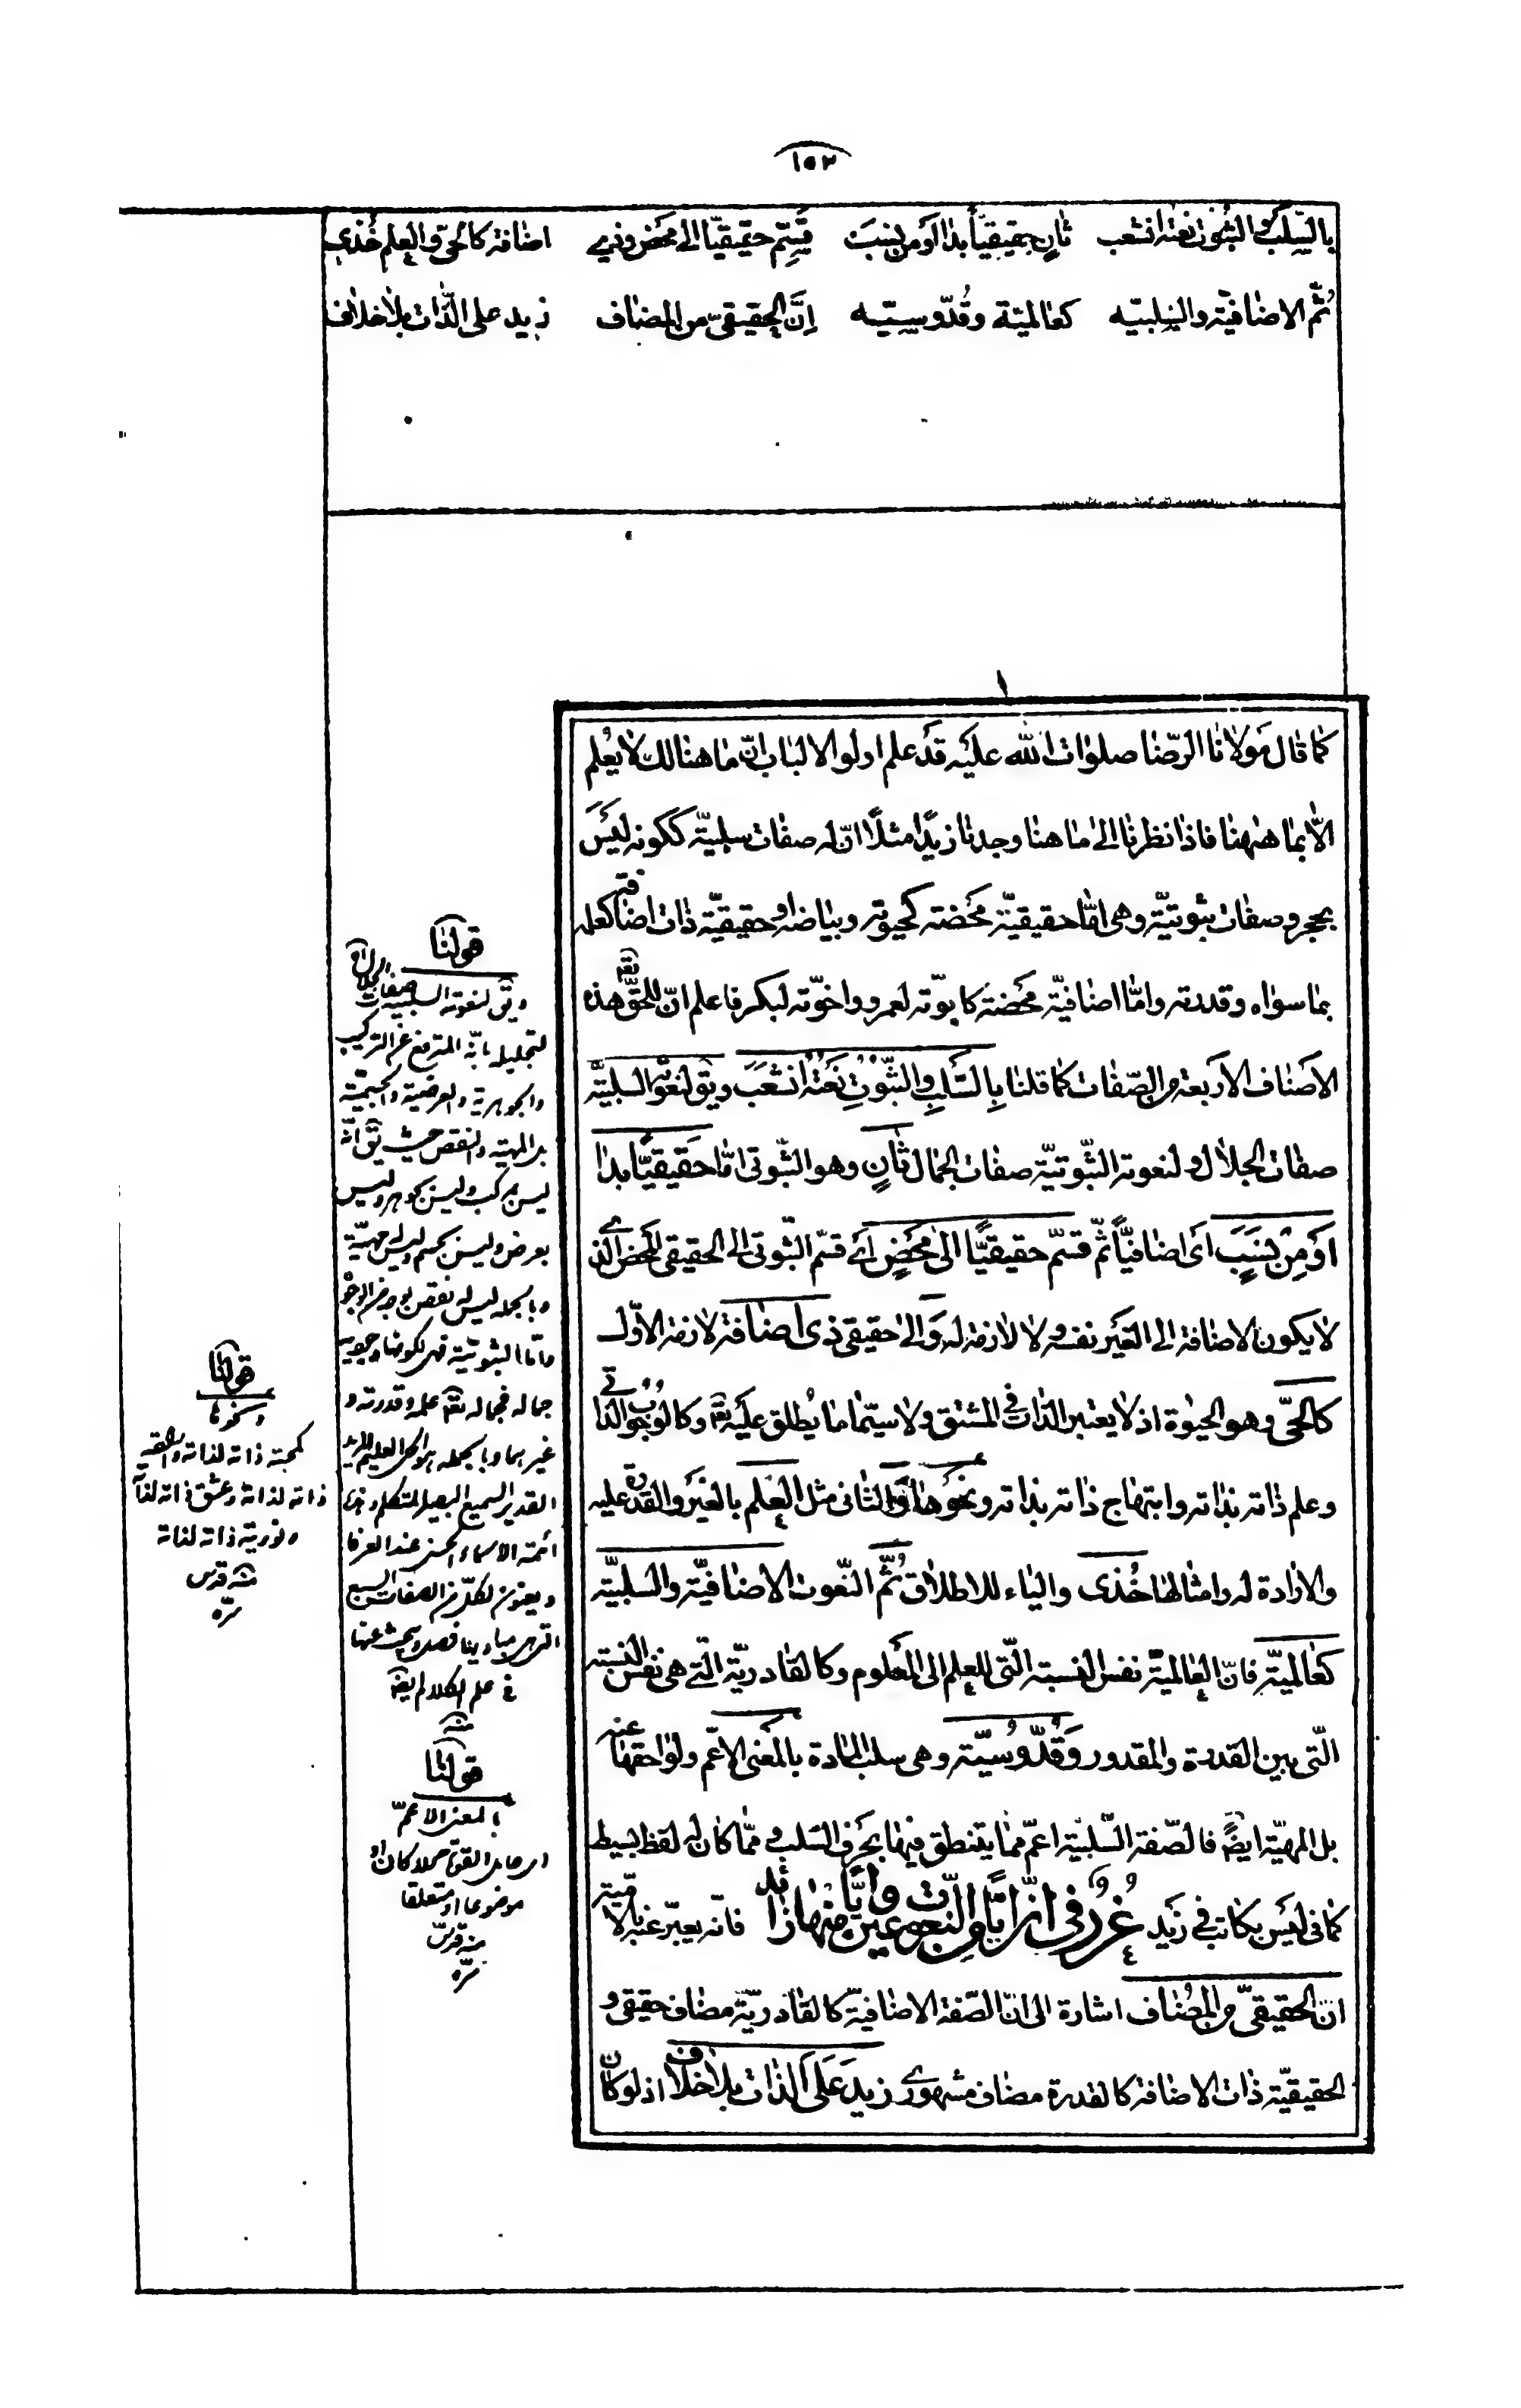 ١٥٢
بالسّلب والثبوت نعته انشعب ثانٍ حقيقيّاً بدا او من نسب قسّم حقيقيّا الى محض وذي اضافة كالحىّ والعلم خذى
ثمّ الاضافيّة والسّلبيّه كعالميّة وقُدّوسيّه انّ الحقيقىّ من المضاف زيد على الذّات بلا خلاف
كما قال مولانا الرّضا صلوات الله عليه قد علم اولوا الالباب انّ ما هنالك لا يعلم
الّا بما هٰهنا فاذا نظرنا الى ما هنا وجدنا زيدًا مثلًا انّ له صفات سلبيّة ككونه ليس
بحجر وصفات ثبوتيّة وهى امّا حقيقيّة محضة كحيوته وبياضه او حقيقيّة ذات اضافة كعلمه
بما سواه وقدرته وامّا اضافيّة محضة كابوّته لعمرو واخوّته لبكر فاعلم انّ للحقّ تعٓ هذه
الاصناف الاربعة من الصّفات كما قلنا بِالسّلبِ والثّبوتِ نَعتُه انشَعَبَ ويقٓ لنعوته السلبيّة
صفات الجلال ولنعوته الثّبوتيّة صفات الجمال ثانٍ وهو الثّبوتى امّا حقيقيًّا بدا
اَوْ مِنْ نِسَبٍ اى اضافيّاً ثمّ قسّم حقيقيًّا الى محضٍ اى قسّم الثّبوتى الى الحقيقى المحض الذى
لا يكون الاضافة الى الغير نفسه ولا لازمة له والى حقيقى ذى اضافة لازمة الاوّل
كالحىّ وهو الحيوة اذ لا يعتبر الذات فى المشتق ولا سيّما ما يُطلق عليه تعٓ وكالوجوب الذاتى
وعلم ذاته بذاته وابتهاج ذاته بذاته ونحوها والثانى مثل العلم بالغير والقدرة عليه
والارادة له وامثالها خُذى والياء للاطلاق ثُمّ النّعوت الاضافيّة والسلبيّة
كعالميّة فانّ العالميّة نفس النسبة الّتى للعلم الى المعلوم وكالقادريّة الّتى هى نفس النسبة
الّتى بين القدرة والمقدور وَقُدّوسيّة وهى سلب المادة بالمعنى الاعّم ولواحقها عنه
بل المهيّة ايضًا فالصّفة السّلبيّة اعّم ممّا يتنطق فيها بحرف السّلب وممّا كان له لفظ بسيط
كما فى ليس بكاتب فى زيد فانّه يعبّر عنه بالاميّة غُررٌ فى انّ ايًّا من النعوت عين الذّات وايًّا منها زائد
انّ الحقيقىّ من المضاف اشارة الى انّ الصّفة الاضافيّة كالقادريّة مضاف حقيقى و
الحقيقيّة ذات الاضافة كالقدرة مضاف مشهورى زيدَ عَلَى الذات بلا خلاف اذ لو كان
قولنا
ويقٓ لنعوته السلبية صفات الجلال اه
لتجليله بانّه المترفع عن التركيب
والجوهرية والعرضية والجسمّية
بل المهيّة والنقص حيث يقٓ انّه
ليس بمركب وليس بجوهر وليس
بعرض وليس بجسم وليس له مهيّة
وبالجمله ليس له نقص بوجه من الوجوه
وامّا الثبوتية فهى لكونها وجوديه
جماله فجماله تعٓ علمه وقدرته و
غيرهما وبالجمله هو الحى العليم المريد
القدير السميع البصير المتكلم وهذه
ائمة الاسماء الحسنى عند العرفا
فى علم الكلام ايضٓ
منه
قولنا
بالمعنى الاعمّ
اى حامل القوة محلا كان او
موضوعا او متعلقا
منه قدسّ
سرّه
قولنا
ونحوها
كمحبة ذاته لذاته
ذاته لذاته وعشق ذاته لذاته
ونورية ذاته لذاته
منه قدس
سرّه